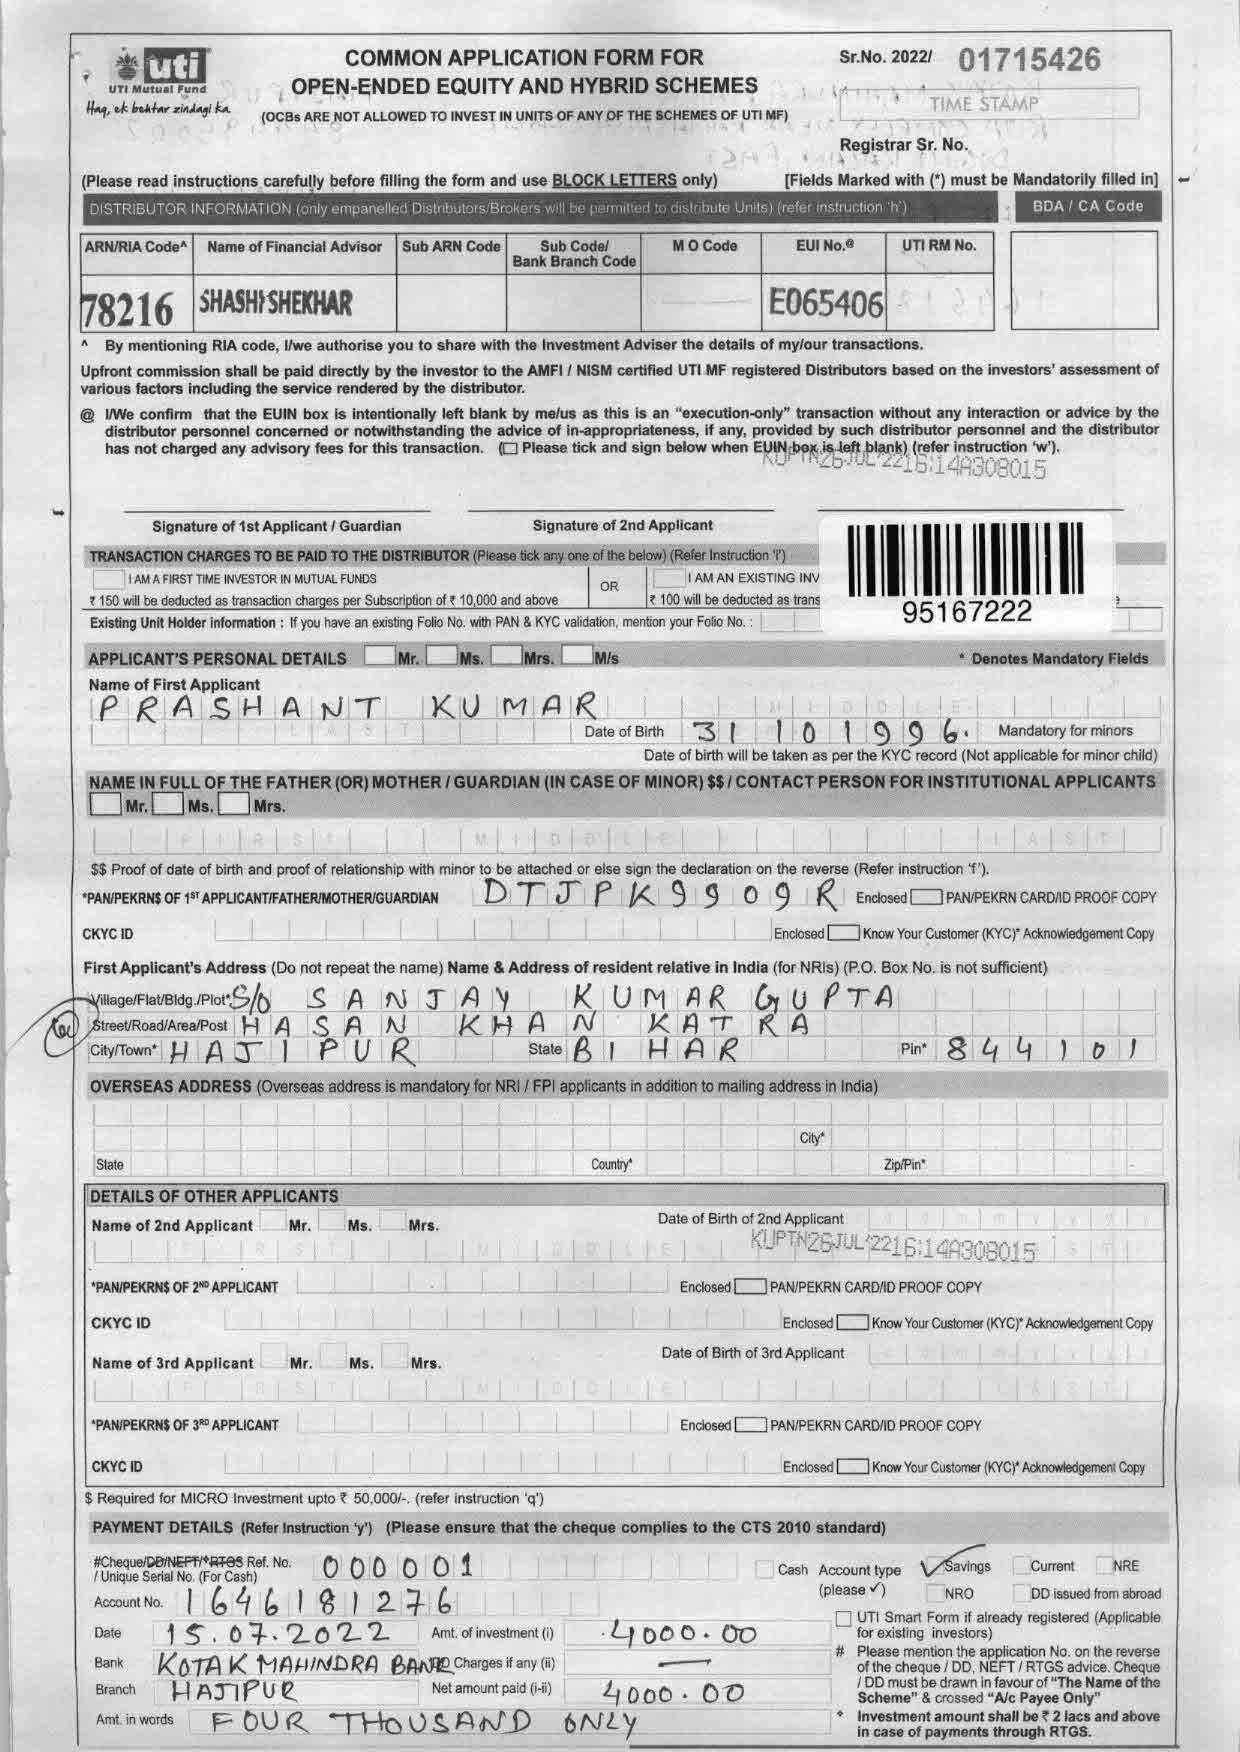 uti
UTI Mutual Fund
Haq, ek behtar zindagi ka
COMMON APPLICATION FORM FOR
OPEN-ENDED EQUITY AND HYBRID SCHEMES
(OCBs ARE NOT ALLOWED TO INVEST IN UNITS OF ANY OF THE SCHEMES OF UTI MF)
Sr.No. 2022/ 01715426
TIME STAMP
Registrar Sr. No.
(Please read instructions carefully before filling the form and use BLOCK LETTERS only) [Fields Marked with (*) must be Mandatorily filled in]
DISTRIBUTOR INFORMATION (only empanelled Distributors/Brokers will be permitted to distribute Units) (refer instruction 'h') BDA / CA Code
ARN/RIA Code^ Name of Financial Advisor Sub ARN Code Sub Code/ Bank Branch Code M O Code EUI No.@ UTI RM No.
78216 SHASHI SHEKHAR E065406
^ By mentioning RIA code, I/we authorise you to share with the Investment Adviser the details of my/our transactions.
Upfront commission shall be paid directly by the investor to the AMFI / NISM certified UTI MF registered Distributors based on the investors' assessment of
various factors including the service rendered by the distributor.
@ I/We confirm that the EUIN box is intentionally left blank by me/us as this is an "execution-only" transaction without any interaction or advice by the
distributor personnel concerned or notwithstanding the advice of in-appropriateness, if any, provided by such distributor personnel and the distributor
has not charged any advisory fees for this transaction. (☐ Please tick and sign below when EUIN box is left blank) (refer instruction 'w').
KUPTN26JUL'2216:14A308015
Signature of 1st Applicant / Guardian Signature of 2nd Applicant
TRANSACTION CHARGES TO BE PAID TO THE DISTRIBUTOR (Please tick any one of the below) (Refer Instruction 'i')
I AM A FIRST TIME INVESTOR IN MUTUAL FUNDS OR I AM AN EXISTING INV
₹ 150 will be deducted as transaction charges per Subscription of ₹ 10,000 and above ₹ 100 will be deducted as trans
95167222
Existing Unit Holder information : If you have an existing Folio No. with PAN & KYC validation, mention your Folio No. :
APPLICANT'S PERSONAL DETAILS Mr. Ms. Mrs. M/s * Denotes Mandatory Fields
Name of First Applicant
PRASHANT KUMAR MIDDLE
LAST Date of Birth 31 10 1996. Mandatory for minors
Date of birth will be taken as per the KYC record (Not applicable for minor child)
NAME IN FULL OF THE FATHER (OR) MOTHER / GUARDIAN (IN CASE OF MINOR) $$ / CONTACT PERSON FOR INSTITUTIONAL APPLICANTS
Mr. Ms. Mrs.
FIRST MIDDLE LAST
$$ Proof of date of birth and proof of relationship with minor to be attached or else sign the declaration on the reverse (Refer instruction 'f').
*PAN/PEKRN$ OF 1ST APPLICANT/FATHER/MOTHER/GUARDIAN DTJPK9909R Enclosed PAN/PEKRN CARD/ID PROOF COPY
CKYC ID Enclosed Know Your Customer (KYC)* Acknowledgement Copy
First Applicant's Address (Do not repeat the name) Name & Address of resident relative in India (for NRIs) (P.O. Box No. is not sufficient)
Village/Flat/Bldg./Plot* S/o SANJAY KUMAR GUPTA
Street/Road/Area/Post HASAN KHAN KATRA
City/Town* HAJIPUR State BIHAR Pin* 844101
OVERSEAS ADDRESS (Overseas address is mandatory for NRI / FPI applicants in addition to mailing address in India)
City*
State Country* Zip/Pin*
DETAILS OF OTHER APPLICANTS
Name of 2nd Applicant Mr. Ms. Mrs. Date of Birth of 2nd Applicant d d m m y y y y
FIRST MIDDLE LAST
KUPTN26JUL'2216:14A308015
*PAN/PEKRN$ OF 2ND APPLICANT Enclosed PAN/PEKRN CARD/ID PROOF COPY
CKYC ID Enclosed Know Your Customer (KYC)* Acknowledgement Copy
Name of 3rd Applicant Mr. Ms. Mrs. Date of Birth of 3rd Applicant d d m m y y y y
FIRST MIDDLE LAST
*PAN/PEKRN$ OF 3RD APPLICANT Enclosed PAN/PEKRN CARD/ID PROOF COPY
CKYC ID Enclosed Know Your Customer (KYC)* Acknowledgement Copy
$ Required for MICRO Investment upto ₹ 50,000/-. (refer instruction 'q')
PAYMENT DETAILS (Refer Instruction 'y') (Please ensure that the cheque complies to the CTS 2010 standard)
#Cheque/DD/NEFT/*RTGS Ref. No. 000001 Cash Account type ✓ Savings Current NRE
/ Unique Serial No. (For Cash) (please ✓) NRO DD issued from abroad
Account No. 1646181276
UTI Smart Form if already registered (Applicable
for existing investors)
Date 15.07.2022 Amt. of investment (i) 4000.00
Bank KOTAK MAHINDRA BANK DD Charges if any (ii) —
Branch HAJIPUR Net amount paid (i-ii) 4000.00
Amt. in words FOUR THOUSAND ONLY
# Please mention the application No. on the reverse
of the cheque / DD, NEFT / RTGS advice. Cheque
/ DD must be drawn in favour of "The Name of the
Scheme" & crossed "A/c Payee Only"
* Investment amount shall be ₹ 2 lacs and above
in case of payments through RTGS.